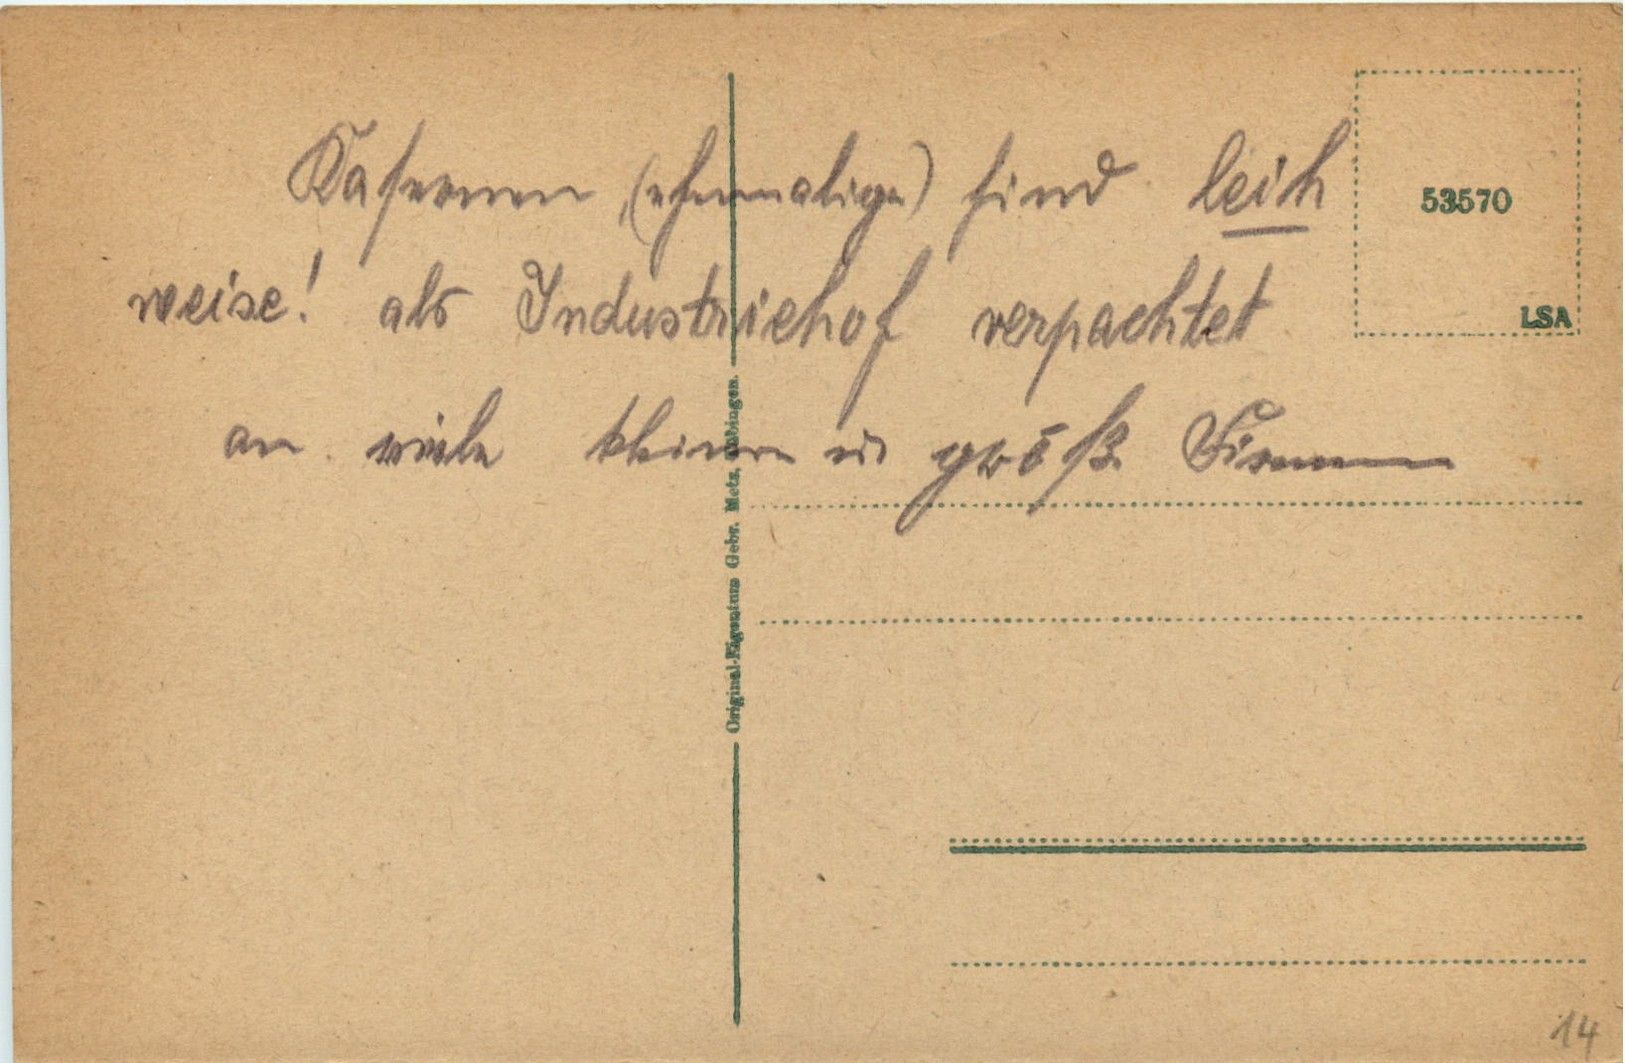 Kasernen (ehemalige) sind leih
weise! als Industriehof verpachtet
an viele kleine u größ. Firmen
53570
LSA
Original-Eigentum Gebr. Metz, Tübingen.
14